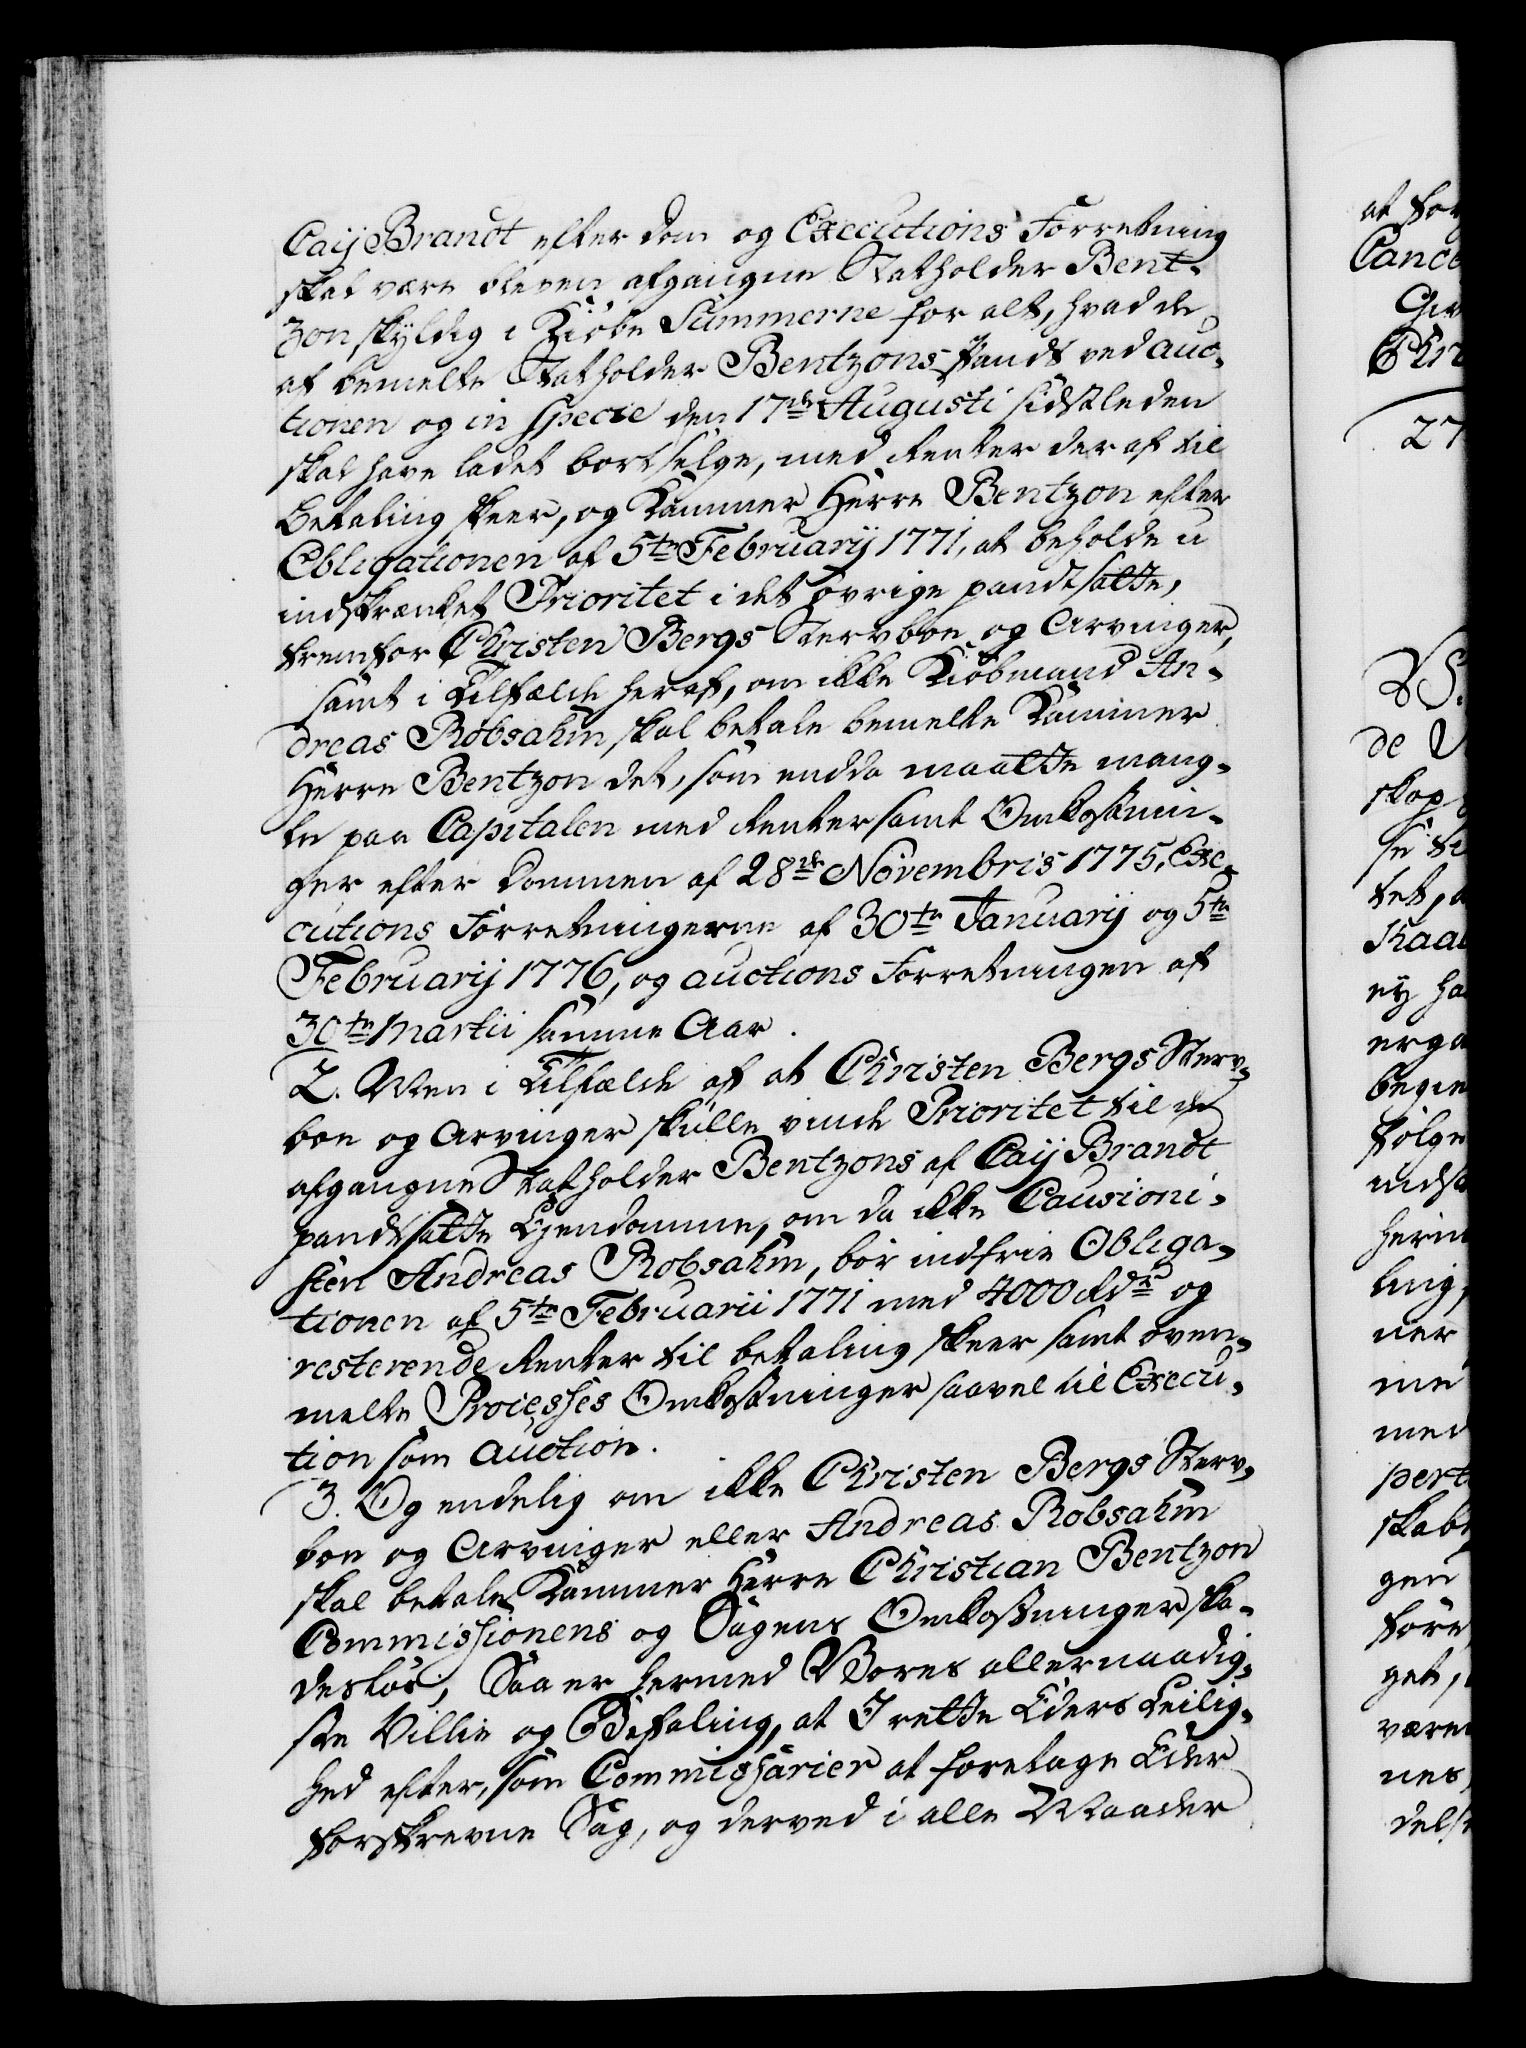 Caij Brandt efter Dom og Executions Forretning
skal være bleven afgangne Statholder Bent-
zon skyldig i Kiøbe Summerne for alt, hvad de
af bemelte Statholder Bentzons Pandt ved auc-
tionen og in specie den 17de Augusti sidstleden
skal have ladet bortselge, med Renter der af til
Betaling skeer, og Kammer Herre Bentzon efter
Obligationen af 5te Februarij 1771, at beholde u
indskrænket Prioritet i det øvrige pandtsatte,
fremfor Christen Bergs Stervboe og Arvinger,
samt i Tilfælde heraf, om ikke Kiøbmand An-
dreas Robsahm skal betale bemelte Kammer
Herre Bentzon det, som endda maatte mang-
le paa Capitalen med Renter samt Omkostnin-
ger efter Dommen af 28de Novembris 1775, Exe-
cutions Forretningerne af 30te Januarij og 5te
Februarij 1776, og auctions Forretningen af
30te Martii samme Aar.
2. Men i Tilfælde af at Christen Bergs Sterv-
boe og Arvinger skulle vinde Prioritet til de
afgangne Statholder Bentzons af Caij Brandt
pandtsatte Ejendomme, om da ikke Causioni-
sten Andreas Robsahm, bør indfrie Obliga-
tionen af 5te Februarii 1771 med 4000 Rdr og
resterende Renter til betaling skeer samt oven-
melte Processes Omkostninger saavel til Execu-
tion som Auction.
3. Og endelig om ikke Christen Bergs Sterv-
boe og Arvinger eller Andreas Robsahm
skal betale Kammer Herre Christian Bentzon
Commissionens og Sagens Omkostninger ska-
desløs; Saa er hermed Vores allernaadig-
ste Villie og Befaling, at I rette Eders Leilig-
hed efter, som Commissarier at foretage Eder
forskrevne Sag, og derved i alle Maader